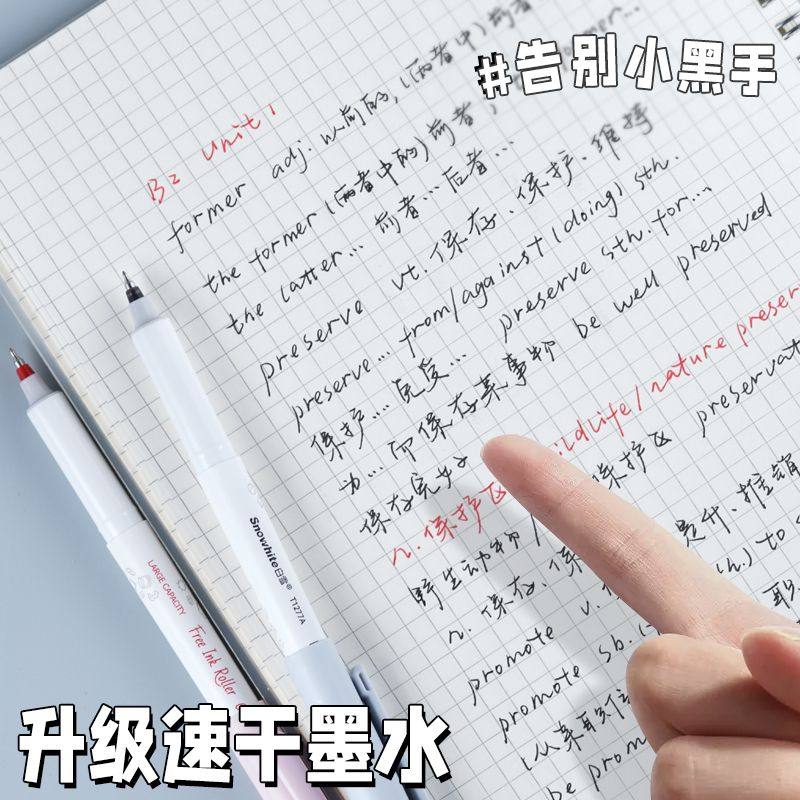 #告别小黑手
B2 Unit 1
former adj. 以前的,(两者中)前者
the former (两者中的)前者
the latter... 前者...后者...
preserve vt. 保存、保护、维持
preserve... from/against (doing) sth.
保护...免受... preserve sth. for...
为...而保存某事物 be well preserved
保存完好
n. 保护区 wildlife/nature preser
野生动物/ 保护区 preservat
n. 保存、保
promote v. 升、推销
promote sb. to
promote
be prom
Snowhite白雪®
T1277A
LARGE CAPACITY
Free Ink Roller
升级速干墨水